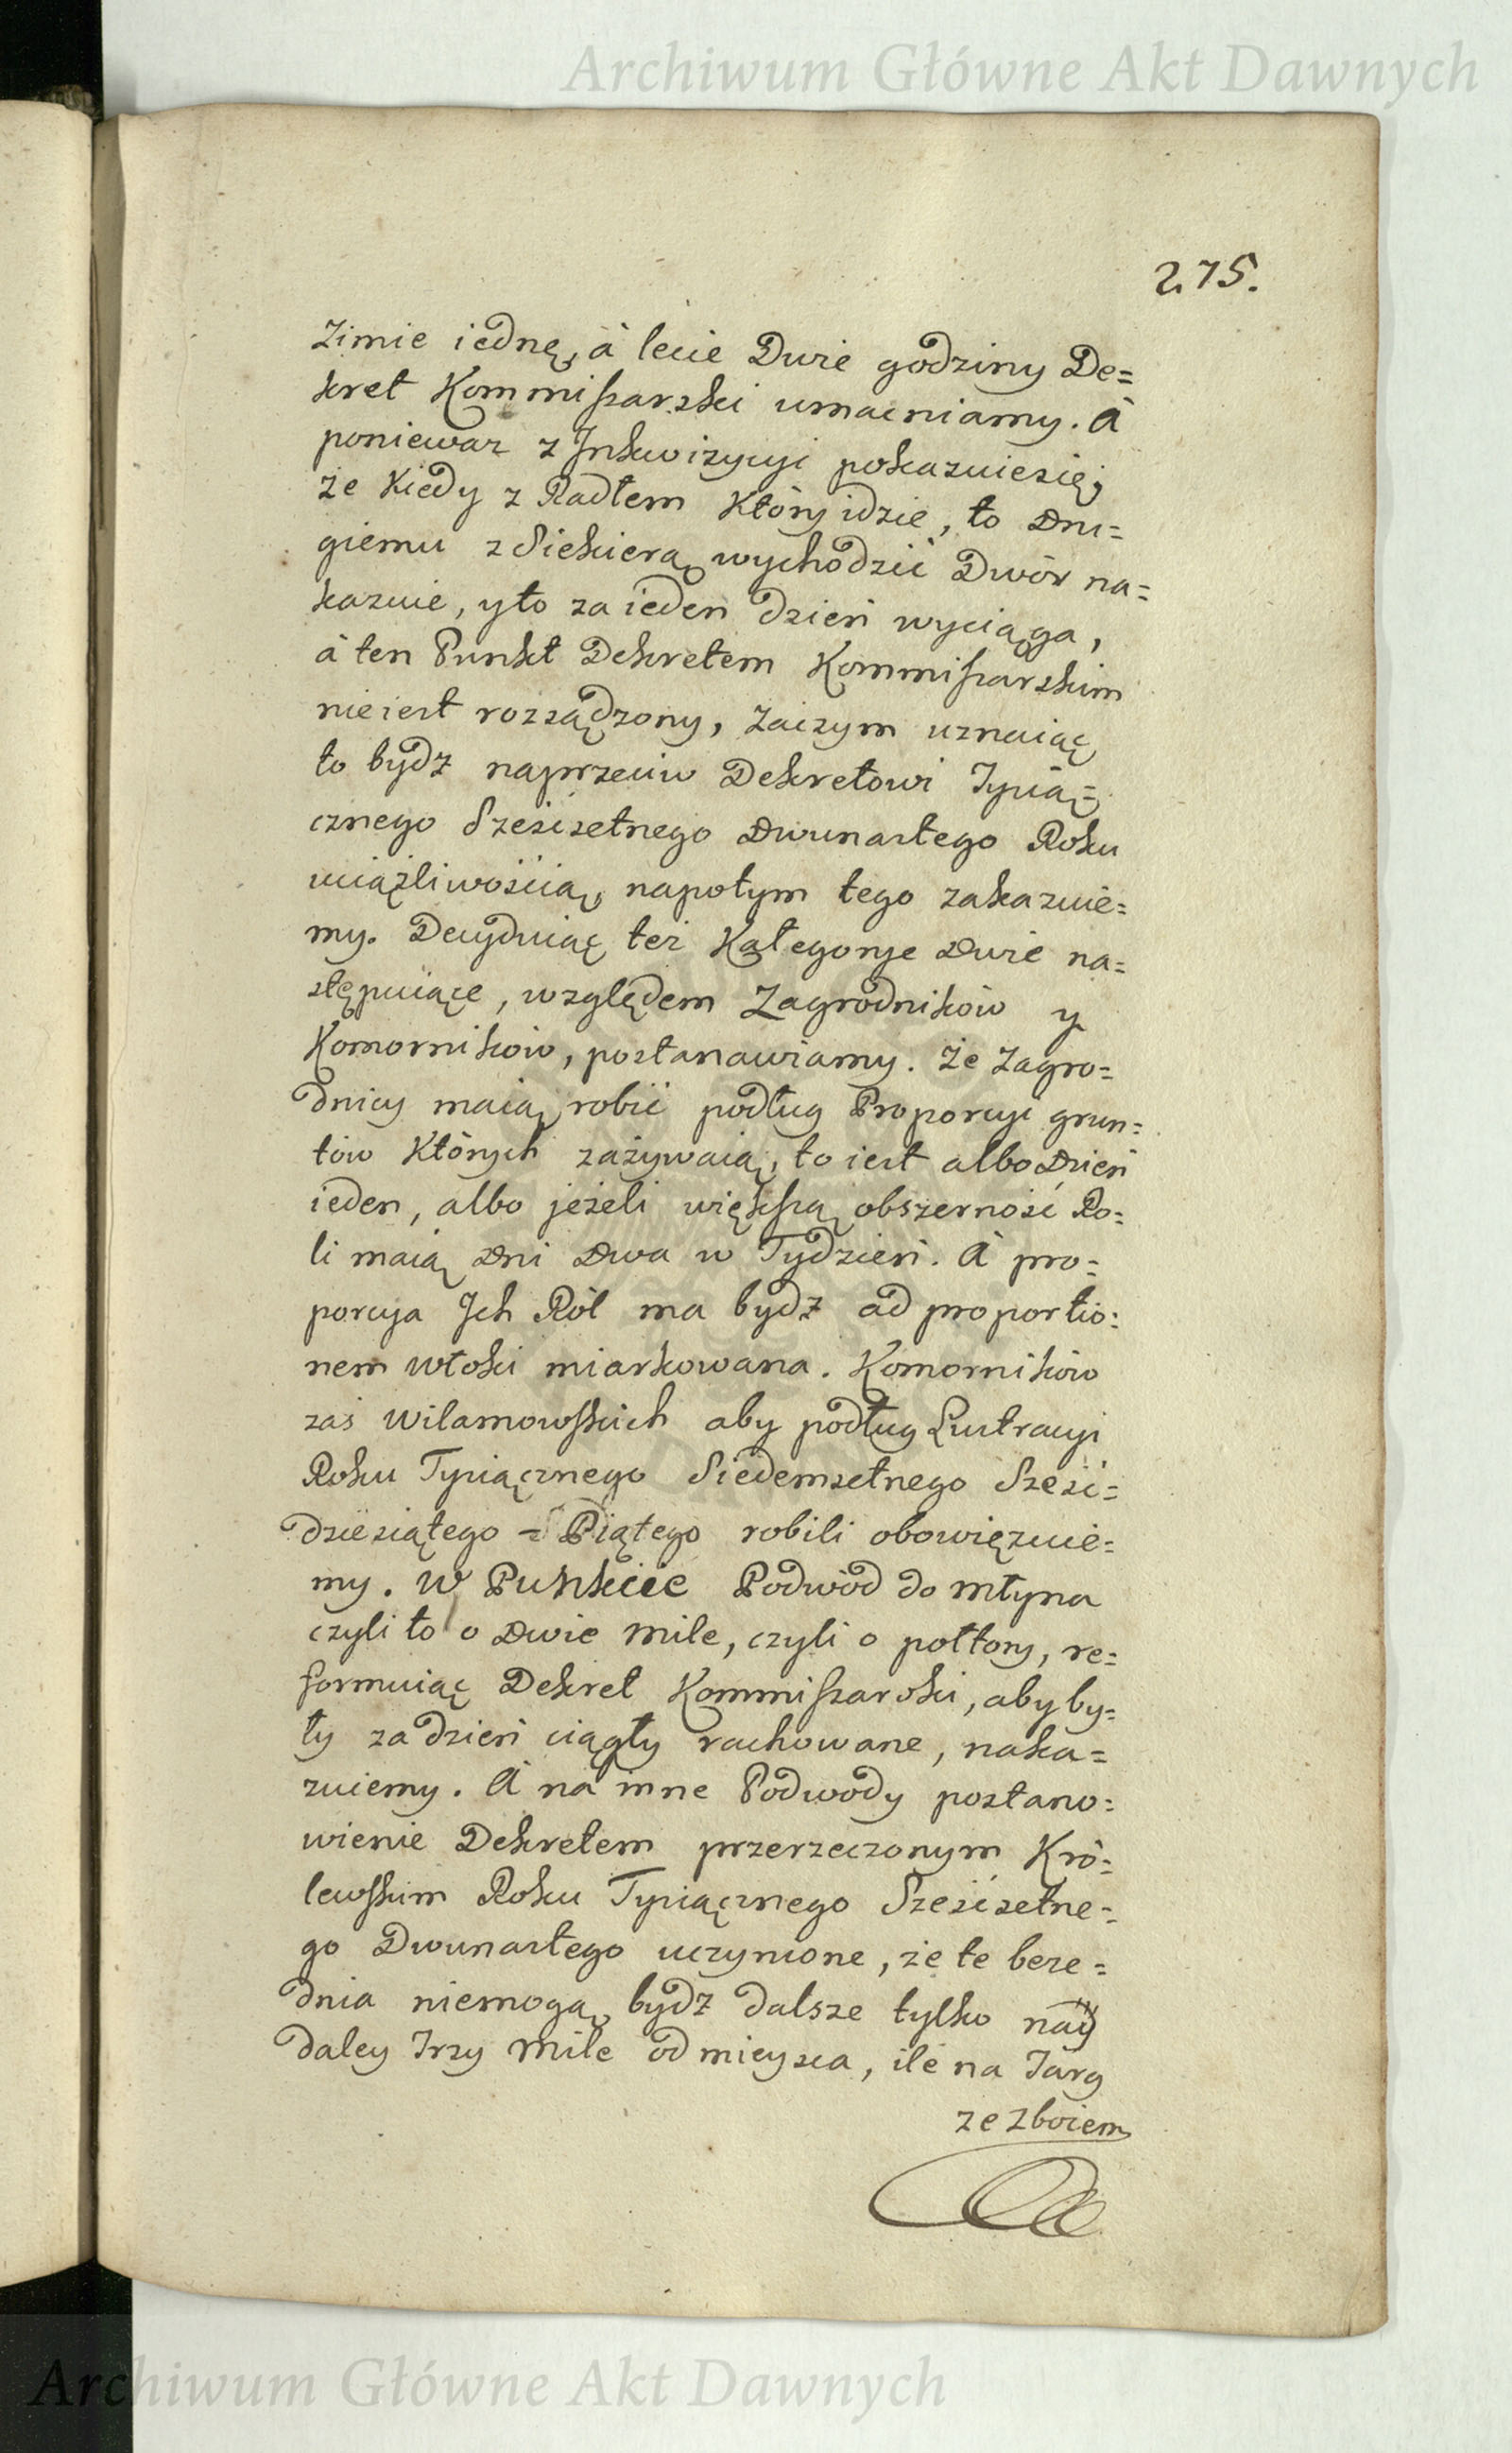 Archiwum Główne Akt Dawnych
275.
Zimie iednę, à lecie Dwie godziny De=
kret Kommissarski umacniamy. A
ponieważ z Jnkwizycyi pokazuiesię,
że kiedy z Radłem Który idzie, to Dru=
giemu z Siekierą wychodzić Dwór na=
kazuie, y to za ieden dzień wyciąga,
à ten Punkt Dekretem Kommissarskim
nieiest rozsądzony, Zaczym uznaiąc
to bydź naprzeciw Dekretowi Tysią=
cznego Sześćsetnego Dwunastego Roku
uciążliwością, napotym tego zakazuie=
my. Decyduiąc też Kategorye Dwie na=
stępuiące, względem Zagrodników y
Komorników, postanawiamy. Że Zagro=
dnicy maią robić podług Proporcyi grun=
tów Których zażywaią, to iest albo Dzień
ieden, albo jeżeli większą obszerność Ro=
li maią Dni Dwa w Tydzień. A pro=
porcya Jch Ról ma bydź ad proportio=
nem włoki miarkowana. Komorników
zaś Wilamowskich aby podług Lustracyi
Roku Tysiącznego Siedemsetnego Sześć=
dziesiątego = Piątego robili obowięzuie=
my. W Punkcie Podwód do Młyna
czyli to o Dwie Mile, czyli o pułtory, re=
formuiąc Dekret Kommissarski, aby by=
ły za dzień ciągły rachowane, naka=
zuiemy. A na inne Podwody postano=
wienie Dekretem przerzeczonym Kró=
lewskim Roku Tysiącznego Sześćsetne=
go Dwunastego uczynione, że te beze=
dnia niemogą bydź dalsze tylko nay
daley Trzy Mile od mieysca, ile na Targ
ze Zboiem
Archiwum Główne Akt Dawnych